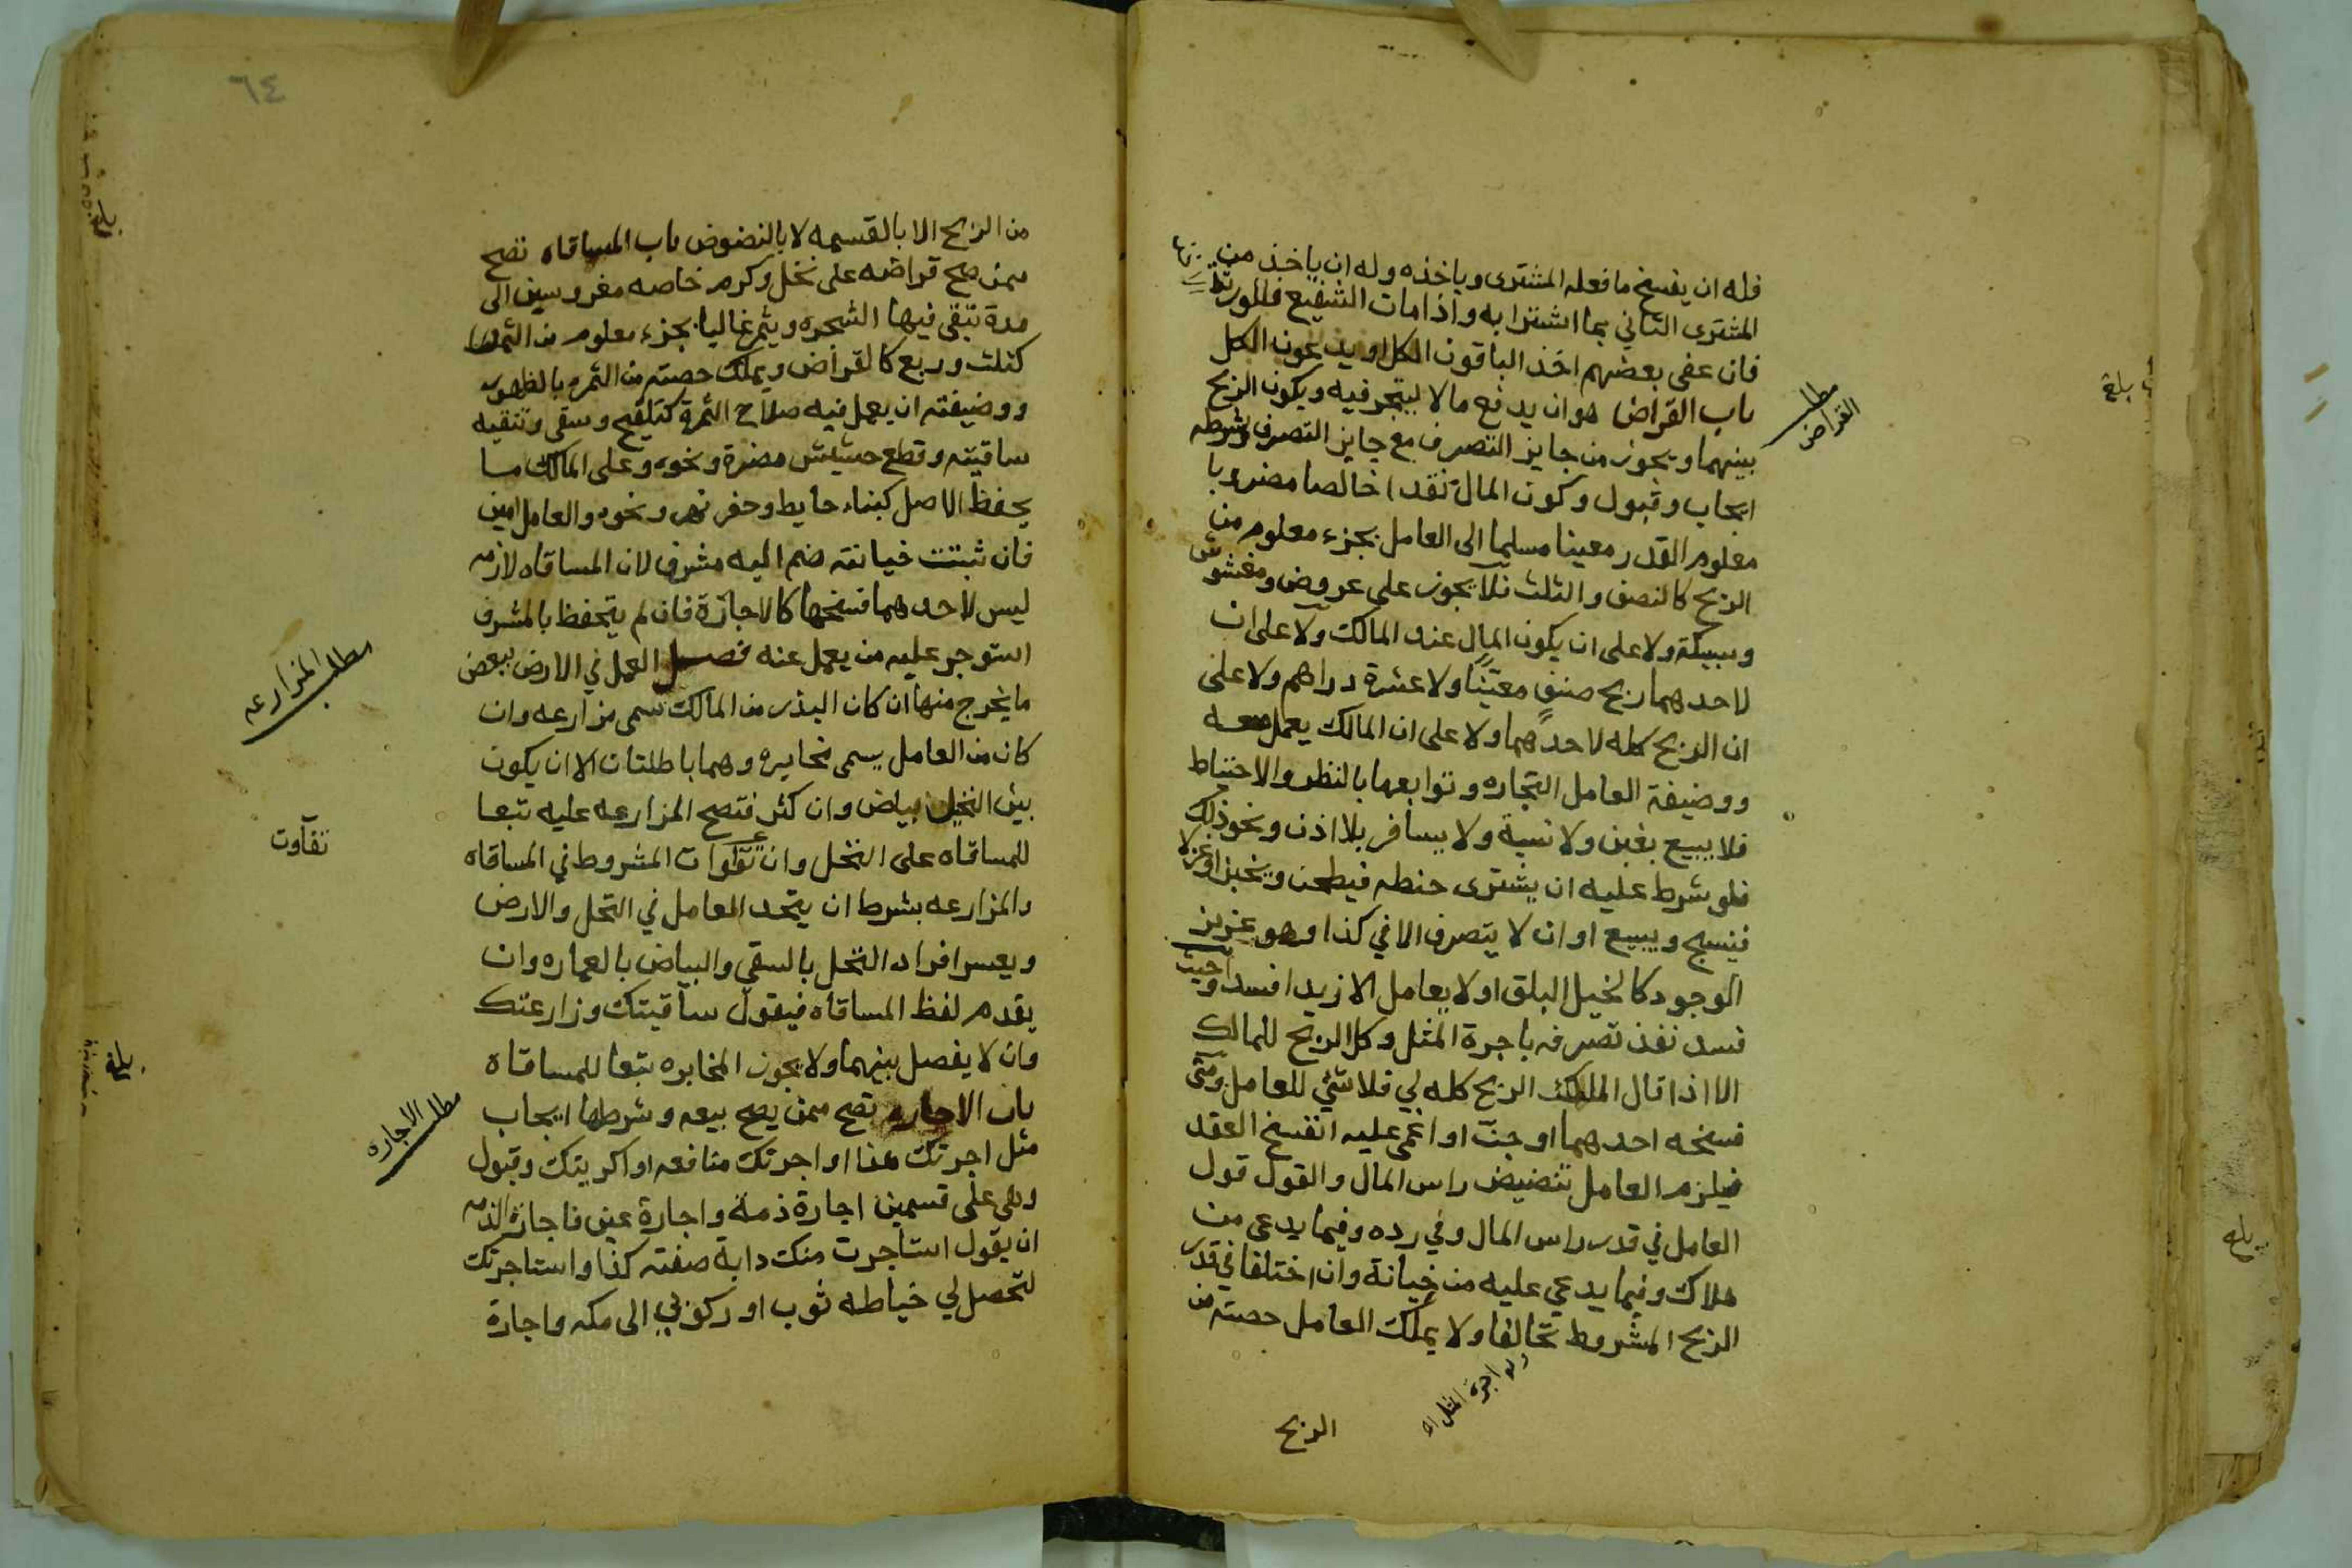 فله ان يفسخ ما فعله المشتري وياخذه وله ان ياخذ من
المشتري الثاني بما اشترا به واذا مات الشفيع فللورثة
فان عفى بعضهم اخذ الباقون الكل او يدعون الكل
باب القراض هو ان يدفع مالا ليتجر فيه ويكون الربح
بينهما ويجوز من جايز التصرف مع جايز التصرف وشرطه
ايجاب وقبول وكون المال نقدا خالصا مضروبا
معلوم القدر معينا مسلما الى العامل بجزء معلوم من
الربح كالنصف والثلث فلا يجوز على عروض ومغشوش
وسبيكة ولا على ان يكون المال عند المالك ولا على ان
لاحدهما ربح صنفٍ معيّنًا ولا عشرة دراهم ولا على
ان الربح كله لاحدهما ولا على ان المالك يعمل معه
ووضيفة العامل التجاره وتوابعها بالنظر والاحتياط
فلا يبيع بغبن ولا نسية ولا يسافر بلا اذن ونحو ذلك
فلو شرط عليه ان يشتري حنطه فيطحن ويخبز او غزلا
فينسج ويبيع او ان لا يتصرف الا في كذا وهو عزيز
الوجود كالخيل البلق او لا يعامل الا زيدا فسد وحيث
فسد نفذ تصرفه باجرة المثل وكل الربح للمالك
الا اذا قال المالك الربح كله لي فلا شئي للعامل ومتى
فسخه احدهما او جن او اغمي عليه انفسخ العقد
فيلزم العامل تنضيض راس المال والقول قول
العامل في قدر راس المال وفي رده وفيما يدعى من
هلاك وفيما يدعي عليه من خيانة وان اختلفا في قدر
الربح المشروط تحالفا ولا يملك العامل حصته من
وله اجرة المثل
الربح
مطلب
القراض
بلغ
بلغ
٦٤
من الربح الا بالقسمه لا بالنضوض باب المساقاه تصح
ممن صح قراضه على نخل وكرم خاصه مغروسين الى
مدة تبقى فيها الشجره ويثمر غاليا بجزء معلوم من الثمره
كثلث وربع كالقراض ويملك حصته من الثمره بالظهور
ووضيفته ان يعمل فيه صلاح الثمرة كتلقيح وسقي وتنقيه
ساقيته وقطع حشيش مضرة ونحوه وعلى المالك ما
يحفظ الاصل كبناء حايط وحفر نهر ونحوه والعامل امين
فان ثبتت خيانته ضم اليه مشرف لان المساقاه لازمه
ليس لاحدهما فسخها كالاجازة فان لم يتحفظ بالمشرف
استوجر عليه من يعمل عنه فصل العمل في الارض ببعض
ما يخرج منها ان كان البذر من المالك سمى مزارعه وان
كان من العامل يسمى مخابره وهما باطلتان الا ان يكون
بين النخيل بياض وان كثر فتصح المزارعه عليه تبعا
للمساقاه على النخل وان تفاوت المشروط في المساقاه
والمزارعه بشرط ان يتحد العامل في النخل والارض
ويعسر افراد النخل بالسقي والبياض بالعماره وان
يقدم لفظ المساقاه فيقول ساقيتك وزارعتك
وان لا يفصل بينهما ولا يجوز المخابره تبعا للمساقاه
باب الاجاره تصح ممن يصح بيعه وشرطها ايجاب
مثل اجرتك هذا او اجرتك منافعه او اكريتك وقبول
وهي على قسمين اجارة ذمة واجارة عين فاجازة الذمه
ان يقول استاجرت منك دابة صفته كذا واستاجرتك
لتحصل لي خياطه ثوب او ركوبي الى مكه واجارة
مطلب المزارعه
تفاوت
مطلب الاجاره
بلغ
بلغ